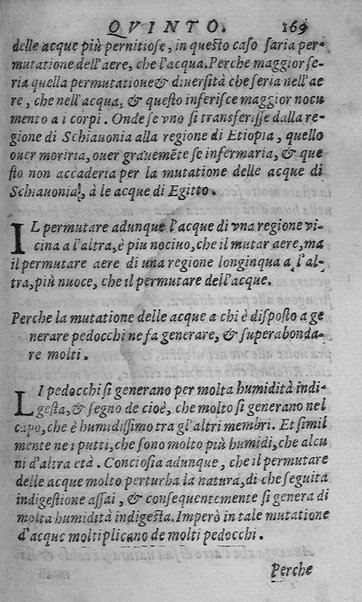 QVINTO. 169
delle acque più pernitiose, in questo caso saria per-
mutatione dell'aere, che l'acqua. Perche maggior se-
ria quella permutatione & diversità che seria nell'ae
re, che nell'acqua, & questo inferisce maggior nocu
mento a i corpi. Onde se vno si transferisse dalla re-
gione di Schiauonia alla regione di Etiopia, quello
ouer moriria, ouer grauemẽte se infermaria, & que
sto non accaderia per la mutatione delle acque di
Schiauonia, à le acque di Egitto.
IL permutare adunque l'acque di vna regione vi-
cina a l'altra, è piu nociuo, che il mutar aere, ma
il permutare aere di una regione longinqua a l'al-
tra, più nuoce, che il permutare dell'acque.
Perche la mutatione delle acque a chi è disposto a ge
nerare pedocchi ne fa generare, & superabonda-
re molti.
LI pedocchi si generano per molta humidità indi-
gesta, & segno de cioè, che molto si generano nel
capo, che è humidissimo tra gl'altri membri. Et simil
mente ne i putti, che sono molto più humidi, che alcu
ni d'altra età. Conciosia adunque, che il permutare
delle acque molto perturba la natura, di che seguita
indigestione assai, & consequentemente si genera di
molta humidità indigesta. Imperò in tale mutatione
d'acque moltiplicano de molti pedocchi.
Perche